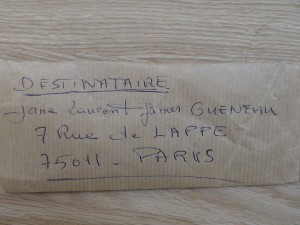 DESTINATAIRE
Laurent James
7 Rue de LAPPE
75011 - PARIS